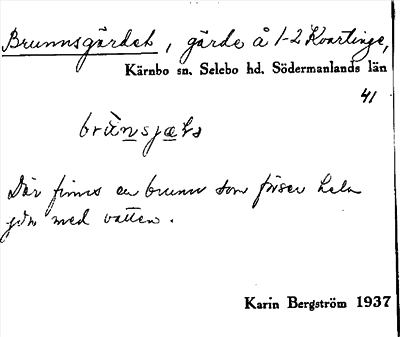 Brunnsgärdet, gärde å 1-2 Kvartinge,
Kärnbo sn. Selebo hd. Södermanlands län
41
Där finns en brunn som förser hela
gdn med vatten.
Karin Bergström 1937